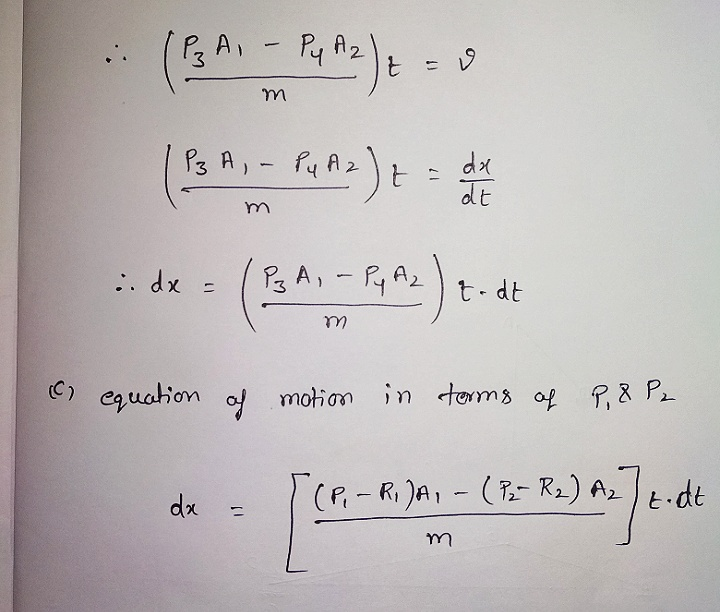 ∴ (P₃ A₁ - P₄ A₂ / m) t = v
(P₃ A₁ - P₄ A₂ / m) t = dx/dt
∴ dx = (P₃ A₁ - P₄ A₂ / m) t. dt
(C) equation of motion in terms of P₁ & P₂
dx = [(P₁ - R₁)A₁ - (P₂ - R₂) A₂ / m] t.dt